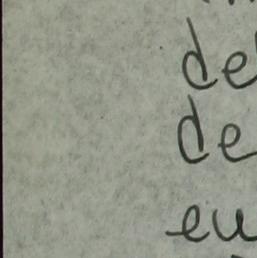 de
de
eu